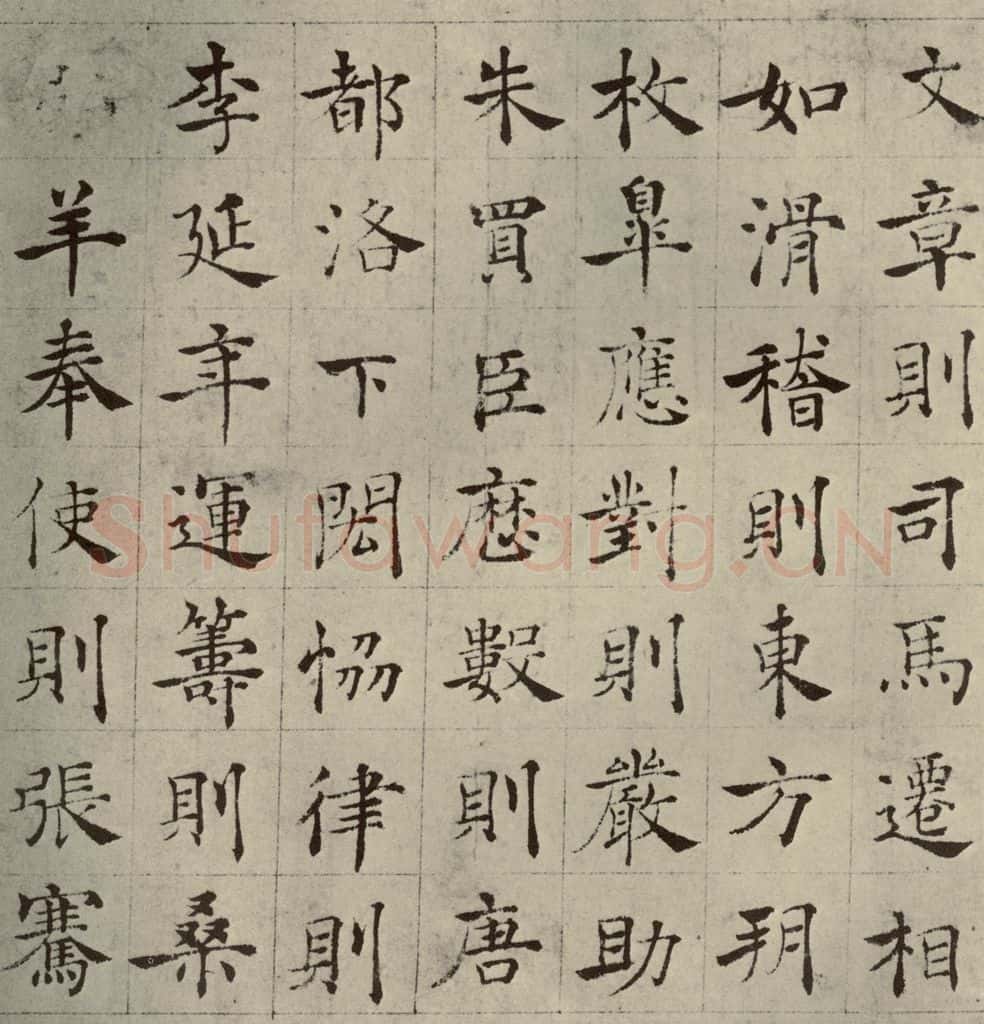 文章則司馬遷相
如滑稽則東方朔
枚皋應對則嚴助
朱買臣歷數則唐
都洛下閎恊律則
李延年運籌則桑
羊奉使則張騫
Shufawang.CN